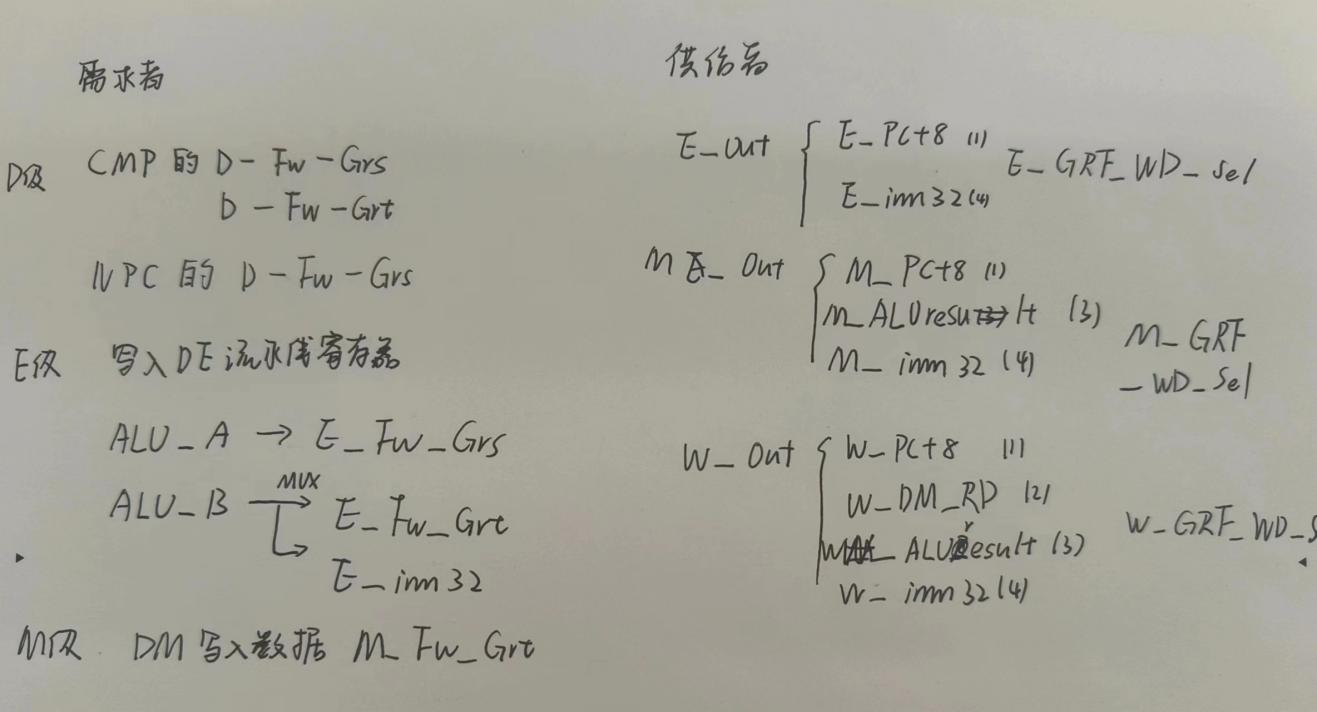 需求者
D级 CMP 的 D-Fw-Grs
D-Fw-Grt
NPC 的 D-Fw-Grs
E级 写入DE流水线寄存器
ALU_A → E_Fw_Grs
ALU_B MUX → E_Fw_Grt
E_imm32
M级 DM写入数据 M_Fw_Grt
供给者
E_Out { E_PC+8 (1) E_GRF_WD_Sel
E_imm32(4)
M_Out { M_PC+8 (1)
M_ALUresult (3)
M_imm32 (4)
M_GRF
_WD_Sel
W_Out { W_PC+8 (1)
W_DM_RD (2)
W_ALUresult (3) W_GRF_WD_S
W_imm32(4)